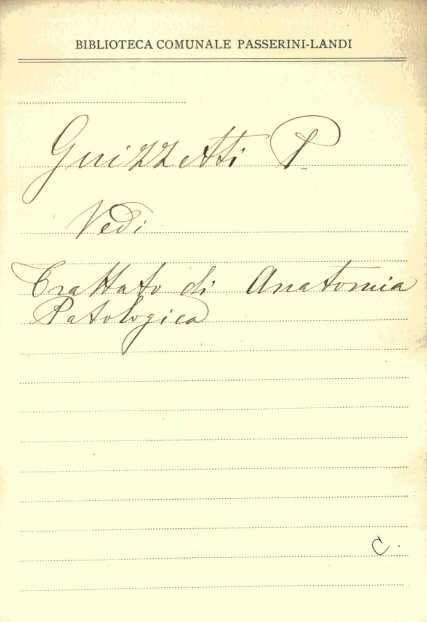 BIBLIOTECA COMUNALE PASSERINI-LANDI
Guizzetti P.
Vedi
Trattato di Anatomia
Patologica
C.